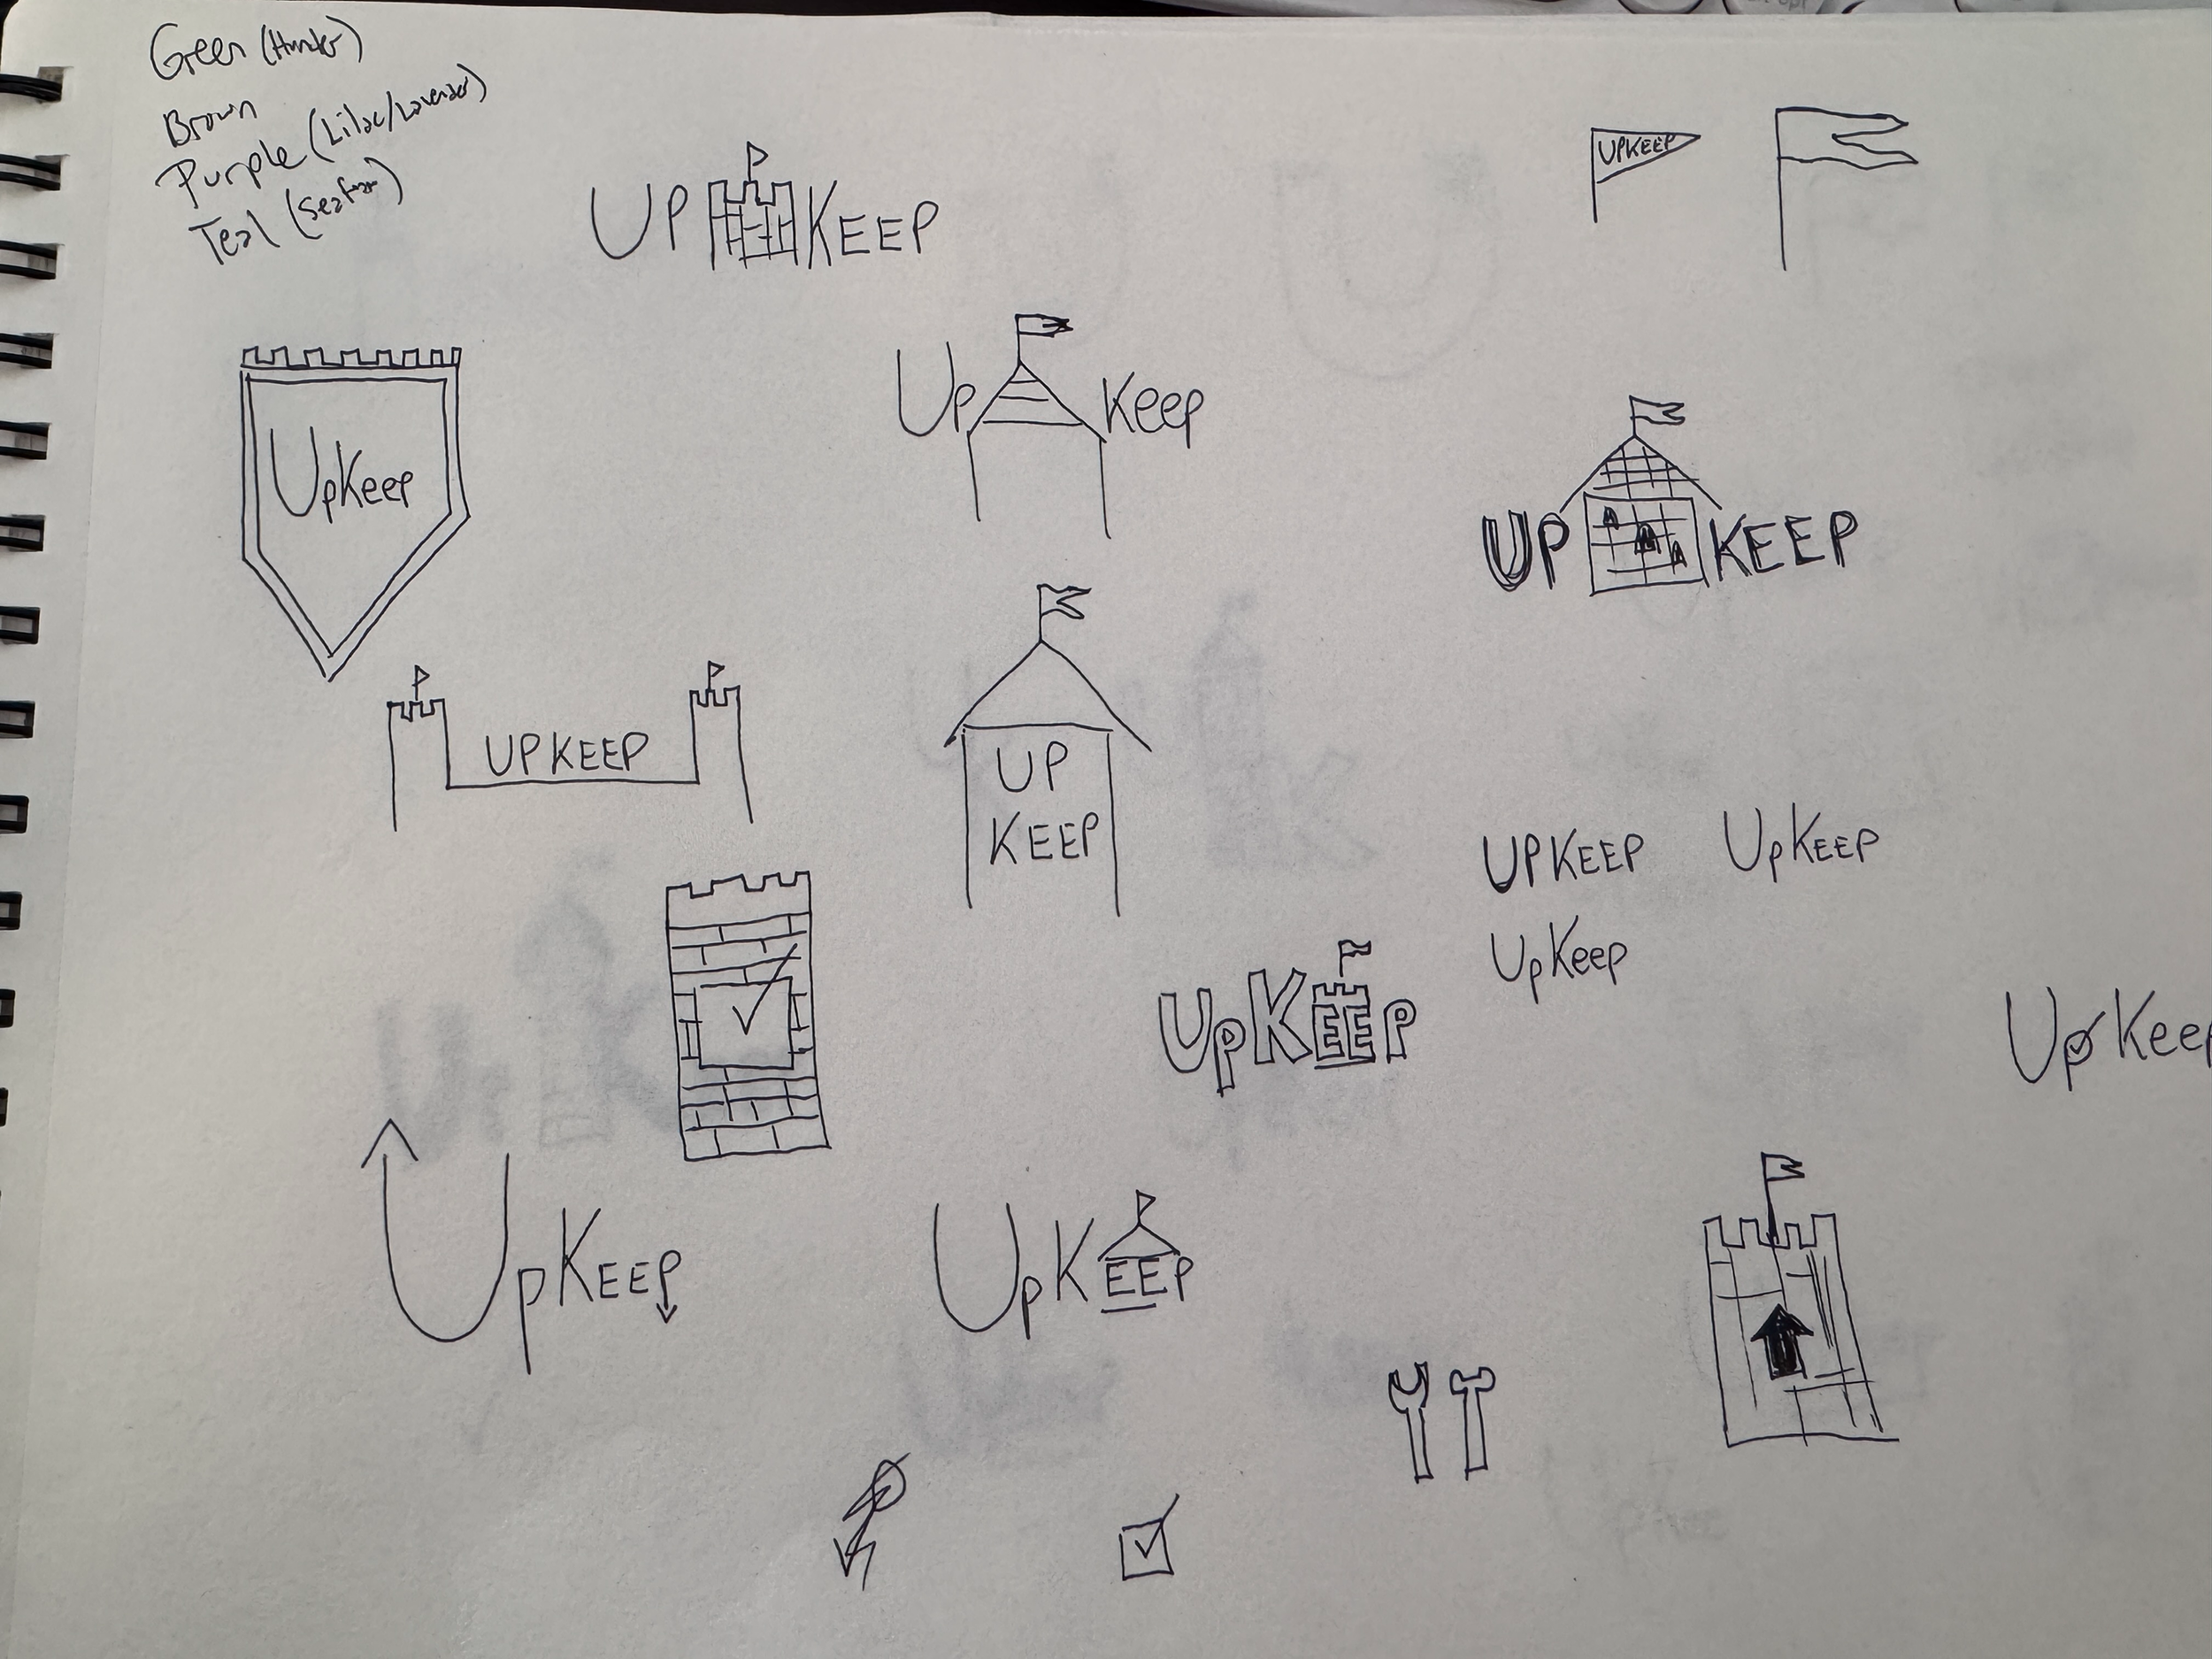 Green (Hunter)
Brown
Purple (Lilac/Lavender)
Teal (Seafoam)
UP KEEP
UPKEEP
Up Keep
UpKeep
UP KEEP
UPKEEP
UP
KEEP
UPKEEP UpKEEP
UpKeep
UpKEEp
Up Keep
UpKEEp
UpKEEP